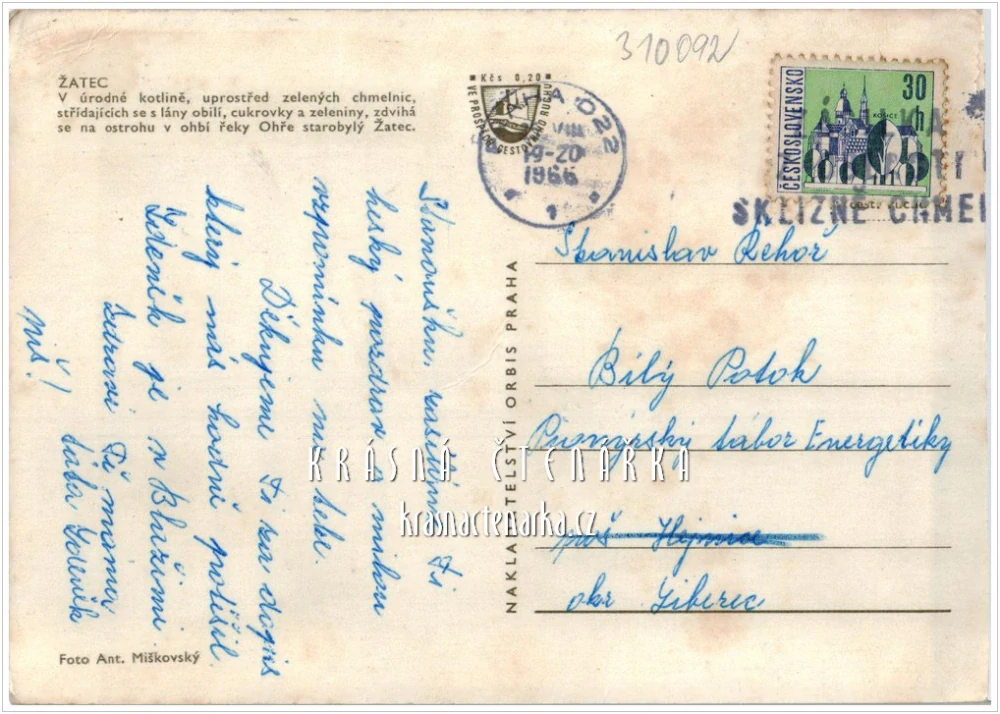 310092
ŽATEC
V úrodné kotlině, uprostřed zelených chmelnic,
střídajících se s lány obilí, cukrovky a zeleniny, zdvihá
se na ostrohu v ohbí řeky Ohře starobylý Žatec.
Kčs 0,20
VE PROSPĚCH CESTOVNÍHO RUCHU
PRAHA 022
VIII
19-20
1966
1
ČESKOSLOVENSKO
30 h
KOŠICE
SKLIZNĚ CHMEL
Stanoušku, zasílám Ti
hezký pozdrav a milou
vzpomínku na tebe.
Děkujeme Ti za dopis
který nás hodně potěšil.
Zdeněk je v
Zdraví Tě máma,
táta Zdeněk
Piš!
NAKLADATELSTVÍ ORBIS PRAHA
Stanislav Řehoř
Bílý Potok
Pionýrský tábor Energetiky
Hejnice
okr Liberec
KRÁSNÁ ČTENÁŘKA
krasnactenarka.cz
Foto Ant. Miškovský